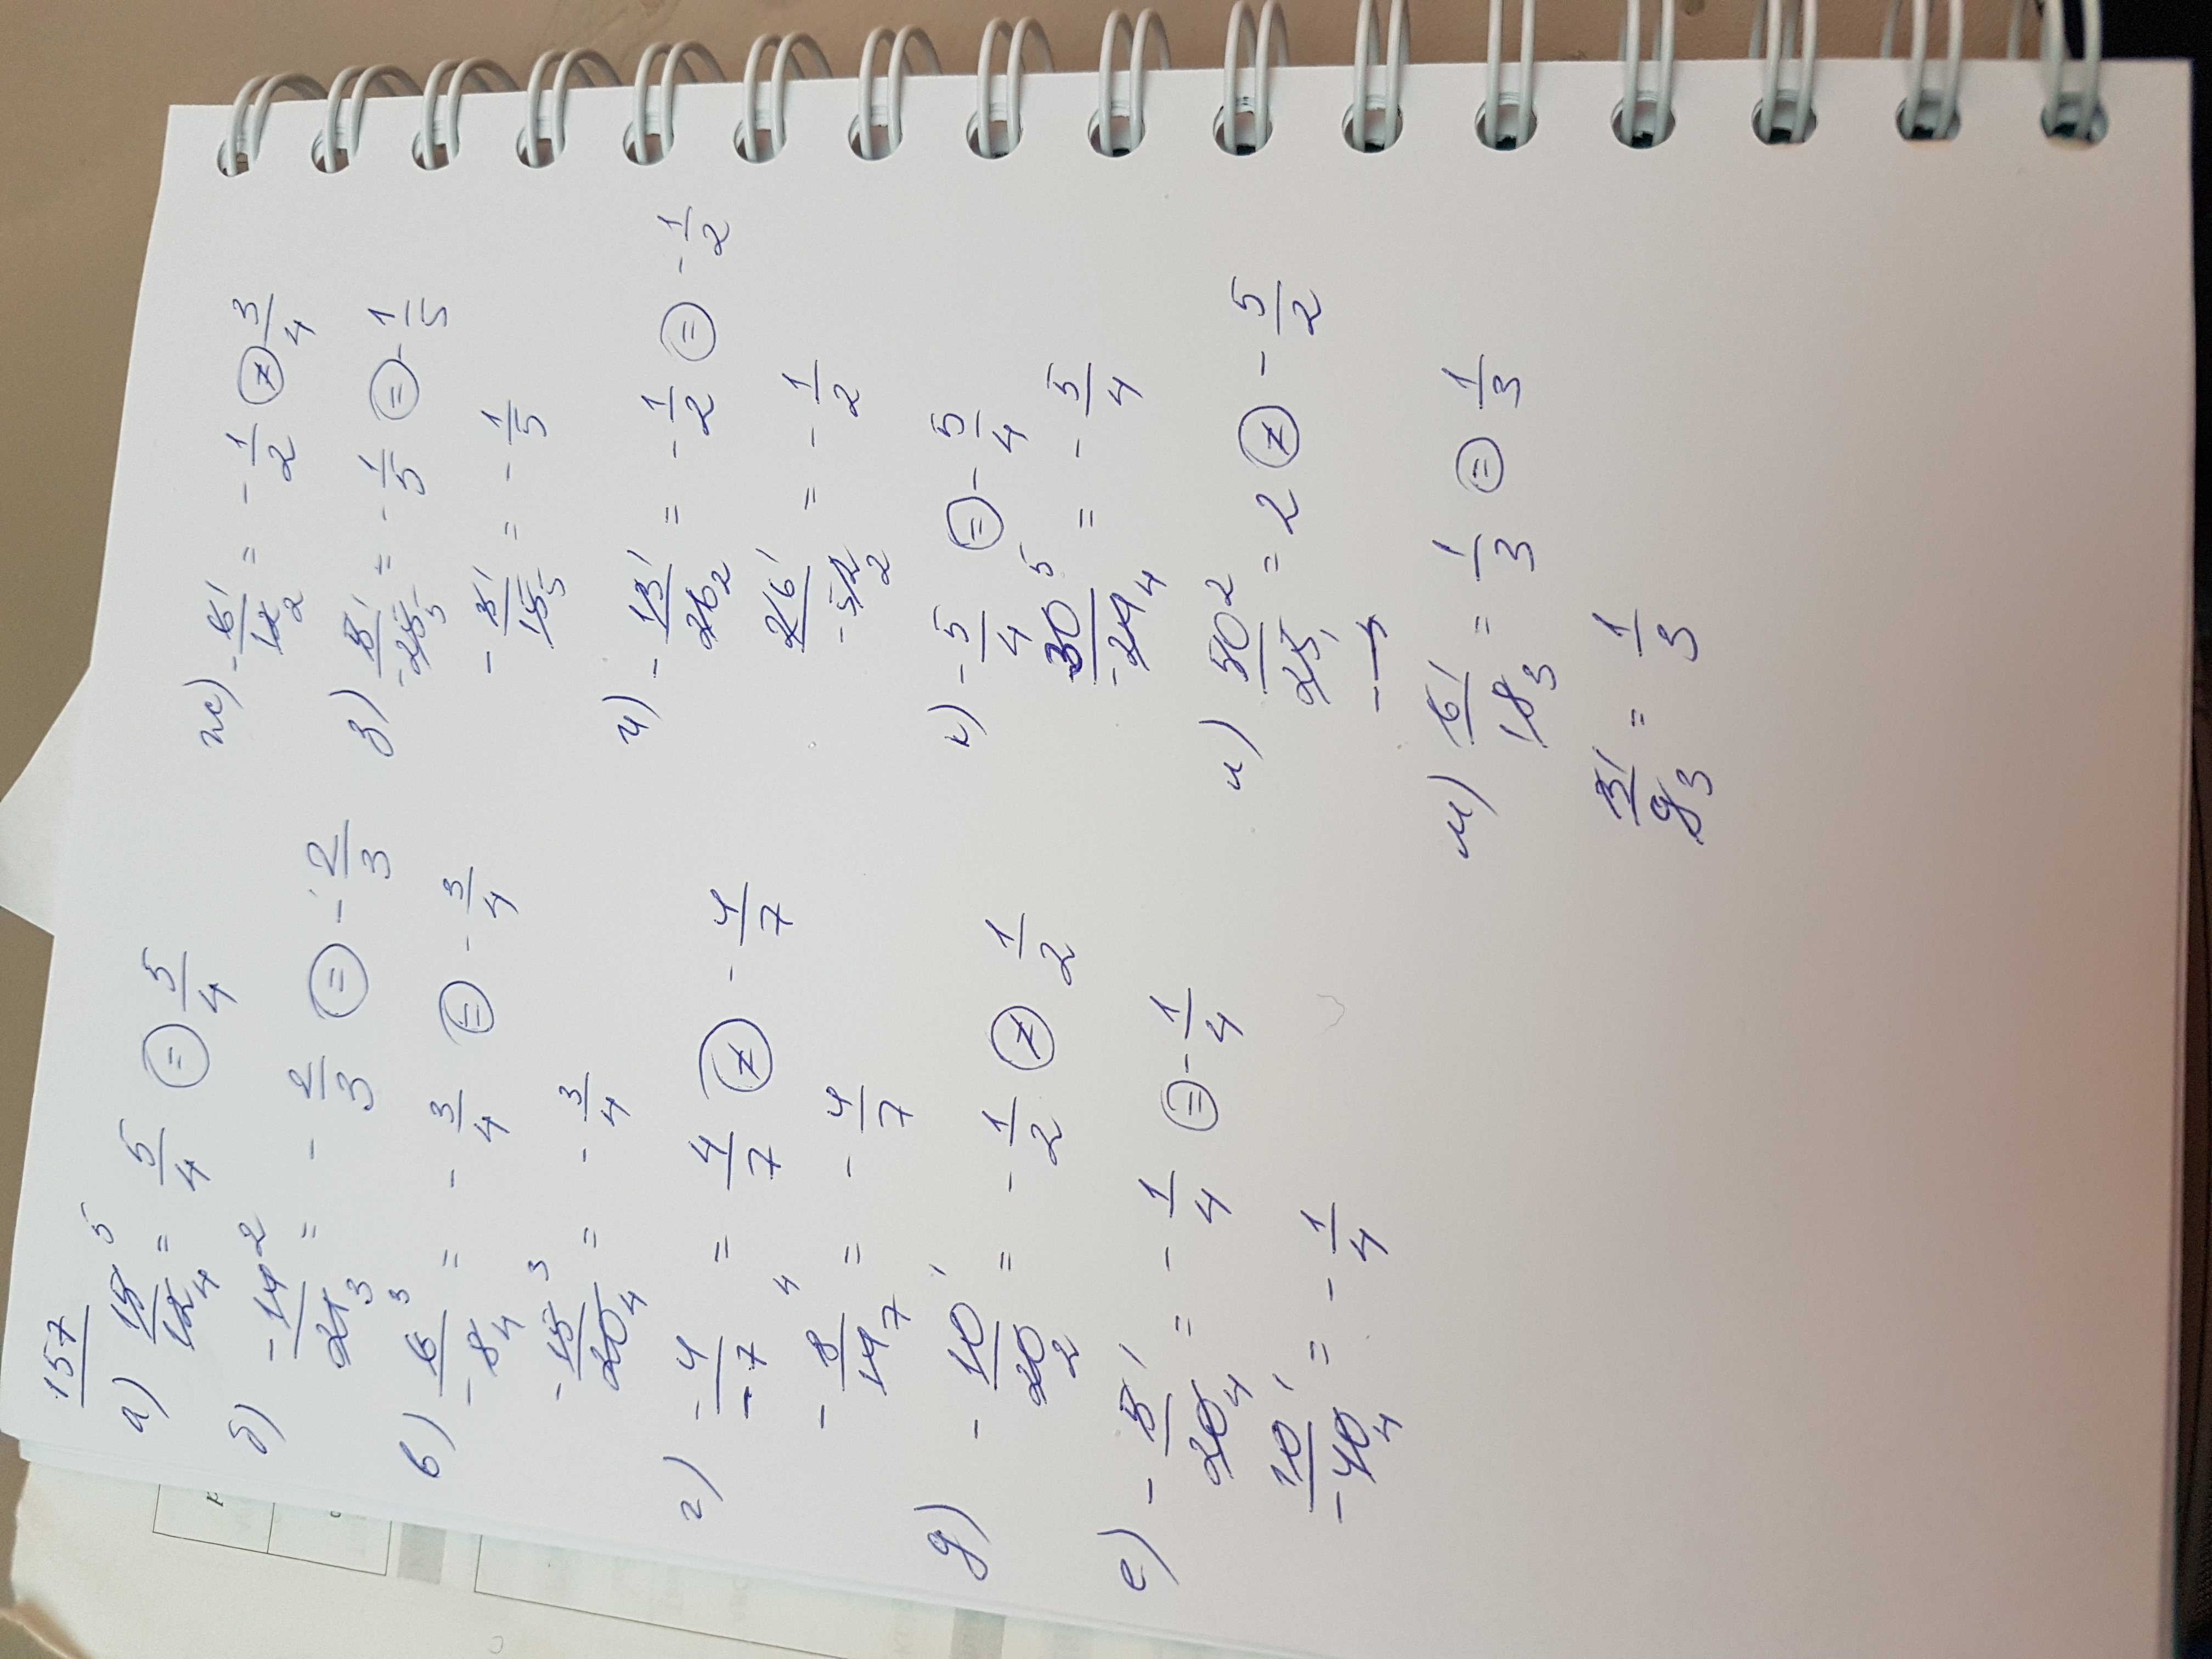 157
а) 15/12 = 5/4 (=) 5/4
б) -14/21 = -2/3 (=) -2/3
в) 6/-8 = -3/4 (=) -3/4
-15/20 = -3/4
г) -4/-7 = 4/7 (≠) -4/7
-8/14 = -4/7
д) -10/20 = -1/2 (≠) 1/2
е) -5/20 = -1/4 (=) -1/4
10/-40 = -1/4
ж) -6/12 = -1/2 (≠) 3/4
з) 5/-25 = -1/5 (=) -1/5
-3/15 = -1/5
и) -13/26 = -1/2 (=) -1/2
26/-52 = -1/2
к) -5/4 (=) -5/4
30/-24 = -5/4
л) 50/25 = 2 (≠) -5/2
м) 6/18 = 1/3 (=) 1/3
3/9 = 1/3